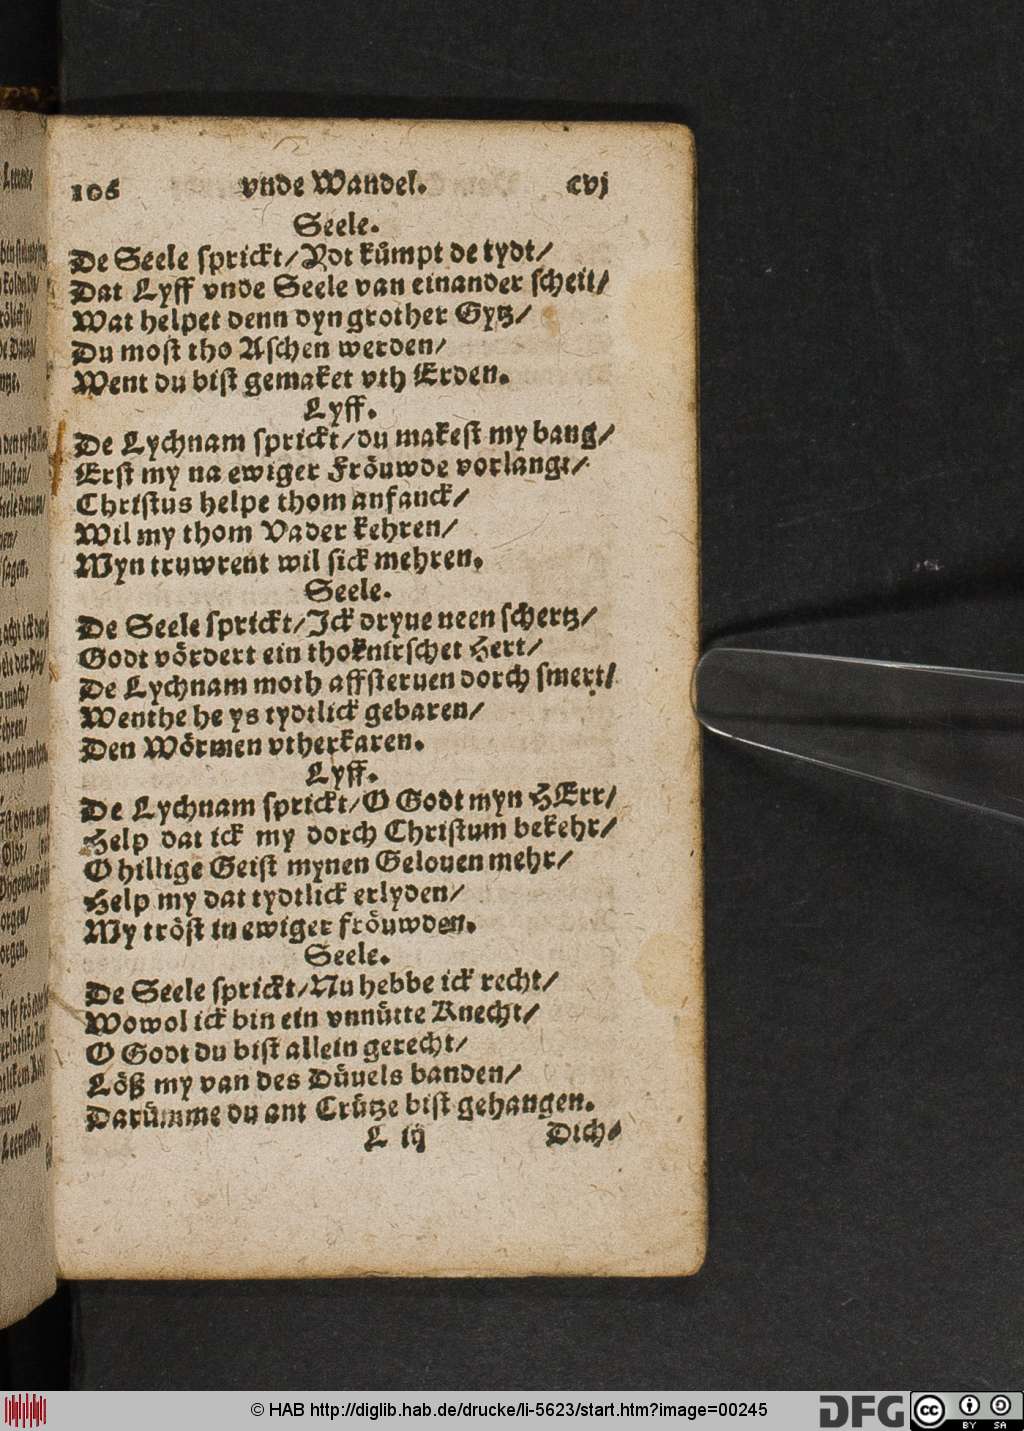 106 vnde Wandel. cvj
Seele.
De Seele sprickt/ Ydt kümpt de tydt/
Dat Lyff vnde Seele van einander scheit/
Wat helpet denn dyn grother Gytz/
Du most tho Aschen werden/
Went du bist gemaket vth Erden.
Lyff.
De Lychnam sprickt/ du makest my bang/
Erst my na ewiger Fröuwde vorlangt/
Christus helpe thom anfanck/
Wil my thom Vader kehren/
Myn truwrent wil sick mehren.
Seele.
De Seele sprickt/ Ick dryue neen schertz/
Godt vördert ein thoknirschet Hert/
De Lychnam moth affsteruen dorch smert/
Wenthe he ys tydtlick gebaren/
Den Wörmen vtherkaren.
Lyff.
De Lychnam sprickt/ O Godt myn HErr/
Help dat ick my dorch Christum bekehr/
O hillige Geist mynen Gelouen mehr/
Help my dat tydtlick erlyden/
My tröst in ewiger fröuwden.
Seele.
De Seele sprickt/ Nu hebbe ick recht/
Wowol ick bin ein vnnütte Knecht/
O Godt du bist allein gerecht/
Löß my van des Düuels banden/
Darümme du ant Crütze bist gehangen.
L iij Dich/
© HAB http://diglib.hab.de/drucke/li-5623/start.htm?image=00245
DFG
cc BY SA